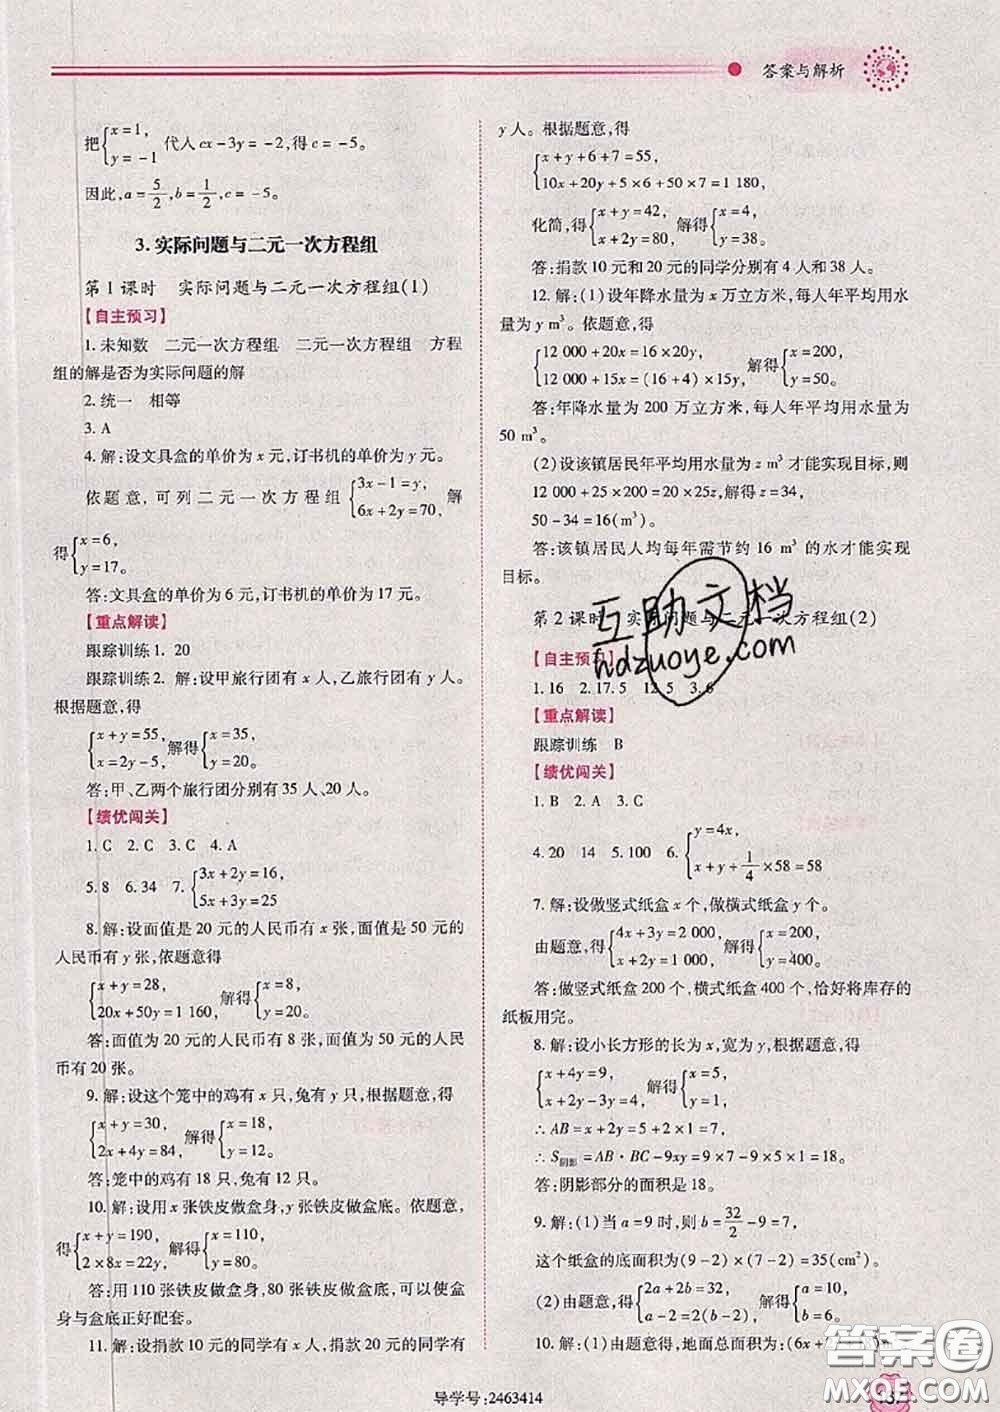 答案与解析
把{x=1, y=-1 代入cx-3y=-2,得c=-5。
因此,a=5/2,b=1/2,c=-5。
3.实际问题与二元一次方程组
第1课时 实际问题与二元一次方程组(1)
【自主预习】
1.未知数 二元一次方程组 二元一次方程组 方程
组的解是否为实际问题的解
2.统一 相等
3.A
4.解:设文具盒的单价为x元,订书机的单价为y元。
依题意,可列二元一次方程组{3x-1=y, 6x+2y=70, 解
得{x=6, y=17。
答:文具盒的单价为6元,订书机的单价为17元。
【重点解读】
跟踪训练1. 20
跟踪训练2. 解:设甲旅行团有x人,乙旅行团有y人。
根据题意,得
{x+y=55, x=2y-5, 解得{x=35, y=20。
答:甲、乙两个旅行团分别有35人、20人。
【绩优闯关】
1.C 2.C 3.C 4.A
5.8 6.34 7.{3x+2y=16, 5x+3y=25
8.解:设面值是20元的人民币有x张,面值是50元的
人民币有y张,依题意得
{x+y=28, 20x+50y=1 160, 解得{x=8, y=20。
答:面值为20元的人民币有8张,面值为50元的人民币
有20张。
9.解:设这个笼中的鸡有x只,兔有y只,根据题意,得
{x+y=30, 2x+4y=84, 解得{x=18, y=12。
答:笼中的鸡有18只,兔有12只。
10.解:设用x张铁皮做盒身,y张铁皮做盒底。依题意,
得{x+y=190, 2×8x=22y, 解得{x=110, y=80。
答:用110张铁皮做盒身,80张铁皮做盒底,可以使盒
身与盒底正好配套。
11.解:设捐款10元的同学有x人,捐款20元的同学有
y人。根据题意,得
{x+y+6+7=55, 10x+20y+5×6+50×7=1 180,
化简,得{x+y=42, x+2y=80, 解得{x=4, y=38。
答:捐款10元和20元的同学分别有4人和38人。
12.解:(1)设年降水量为x万立方米,每人年平均用水
量为y m³。依题意,得
{12 000+20x=16×20y, 12 000+15x=(16+4)×15y, 解得{x=200, y=50。
答:年降水量为200万立方米,每人年平均用水量为
50 m³。
(2)设该镇居民年平均用水量为z m³才能实现目标,则
12 000+25×200=20×25z,解得z=34,
50-34=16(m³)。
答:该镇居民人均每年需节约16 m³的水才能实现
目标。
第2课时 实际问题与二元一次方程组(2)
【自主预习】
1.16 2.17.5 12.5 3.6
【重点解读】
跟踪训练 B
【绩优闯关】
1.B 2.A 3.C
4.20 14 5.100 6.{y=4x, x+y+1/4×58=58
7.解:设做竖式纸盒x个,做横式纸盒y个。
由题意,得{4x+3y=2 000, x+2y=1 000, 解得{x=200, y=400。
答:做竖式纸盒200个,横式纸盒400个,恰好将库存的
纸板用完。
8.解:设小长方形的长为x,宽为y,根据题意,得
{x+4y=9, x+2y-3y=4, 解得{x=5, y=1,
∴AB=x+2y=5+2×1=7,
∴S阴影=AB·BC-9xy=9×7-9×5×1=18。
答:阴影部分的面积是18。
9.解:(1)当a=9时,则b=32/2-9=7,
这个纸盒的底面积为(9-2)×(7-2)=35(cm²)。
(2)由题意,得{2a+2b=32, a-2=2(b-2), 解得{a=10, b=6。
10.解:(1)由题意得,地面总面积为:(6x+
导学号:2463414
互助文档
hdzuoye.com
答案圈
MXQE.COM